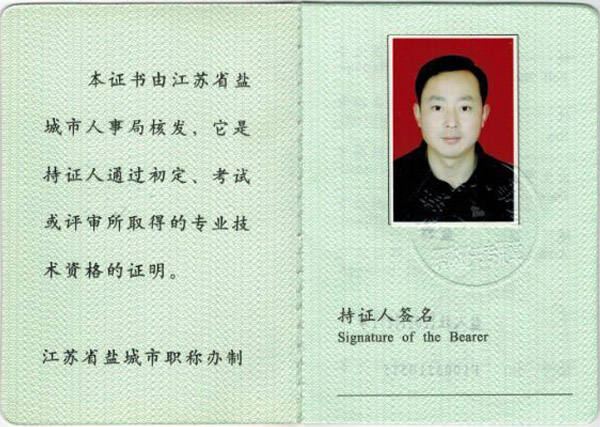 本证书由江苏省盐
城市人事局核发，它是
持证人通过初定、考试
或评审所取得的专业技
术资格的证明。
江苏省盐城市职称办制
持证人签名
Signature of the Bearer